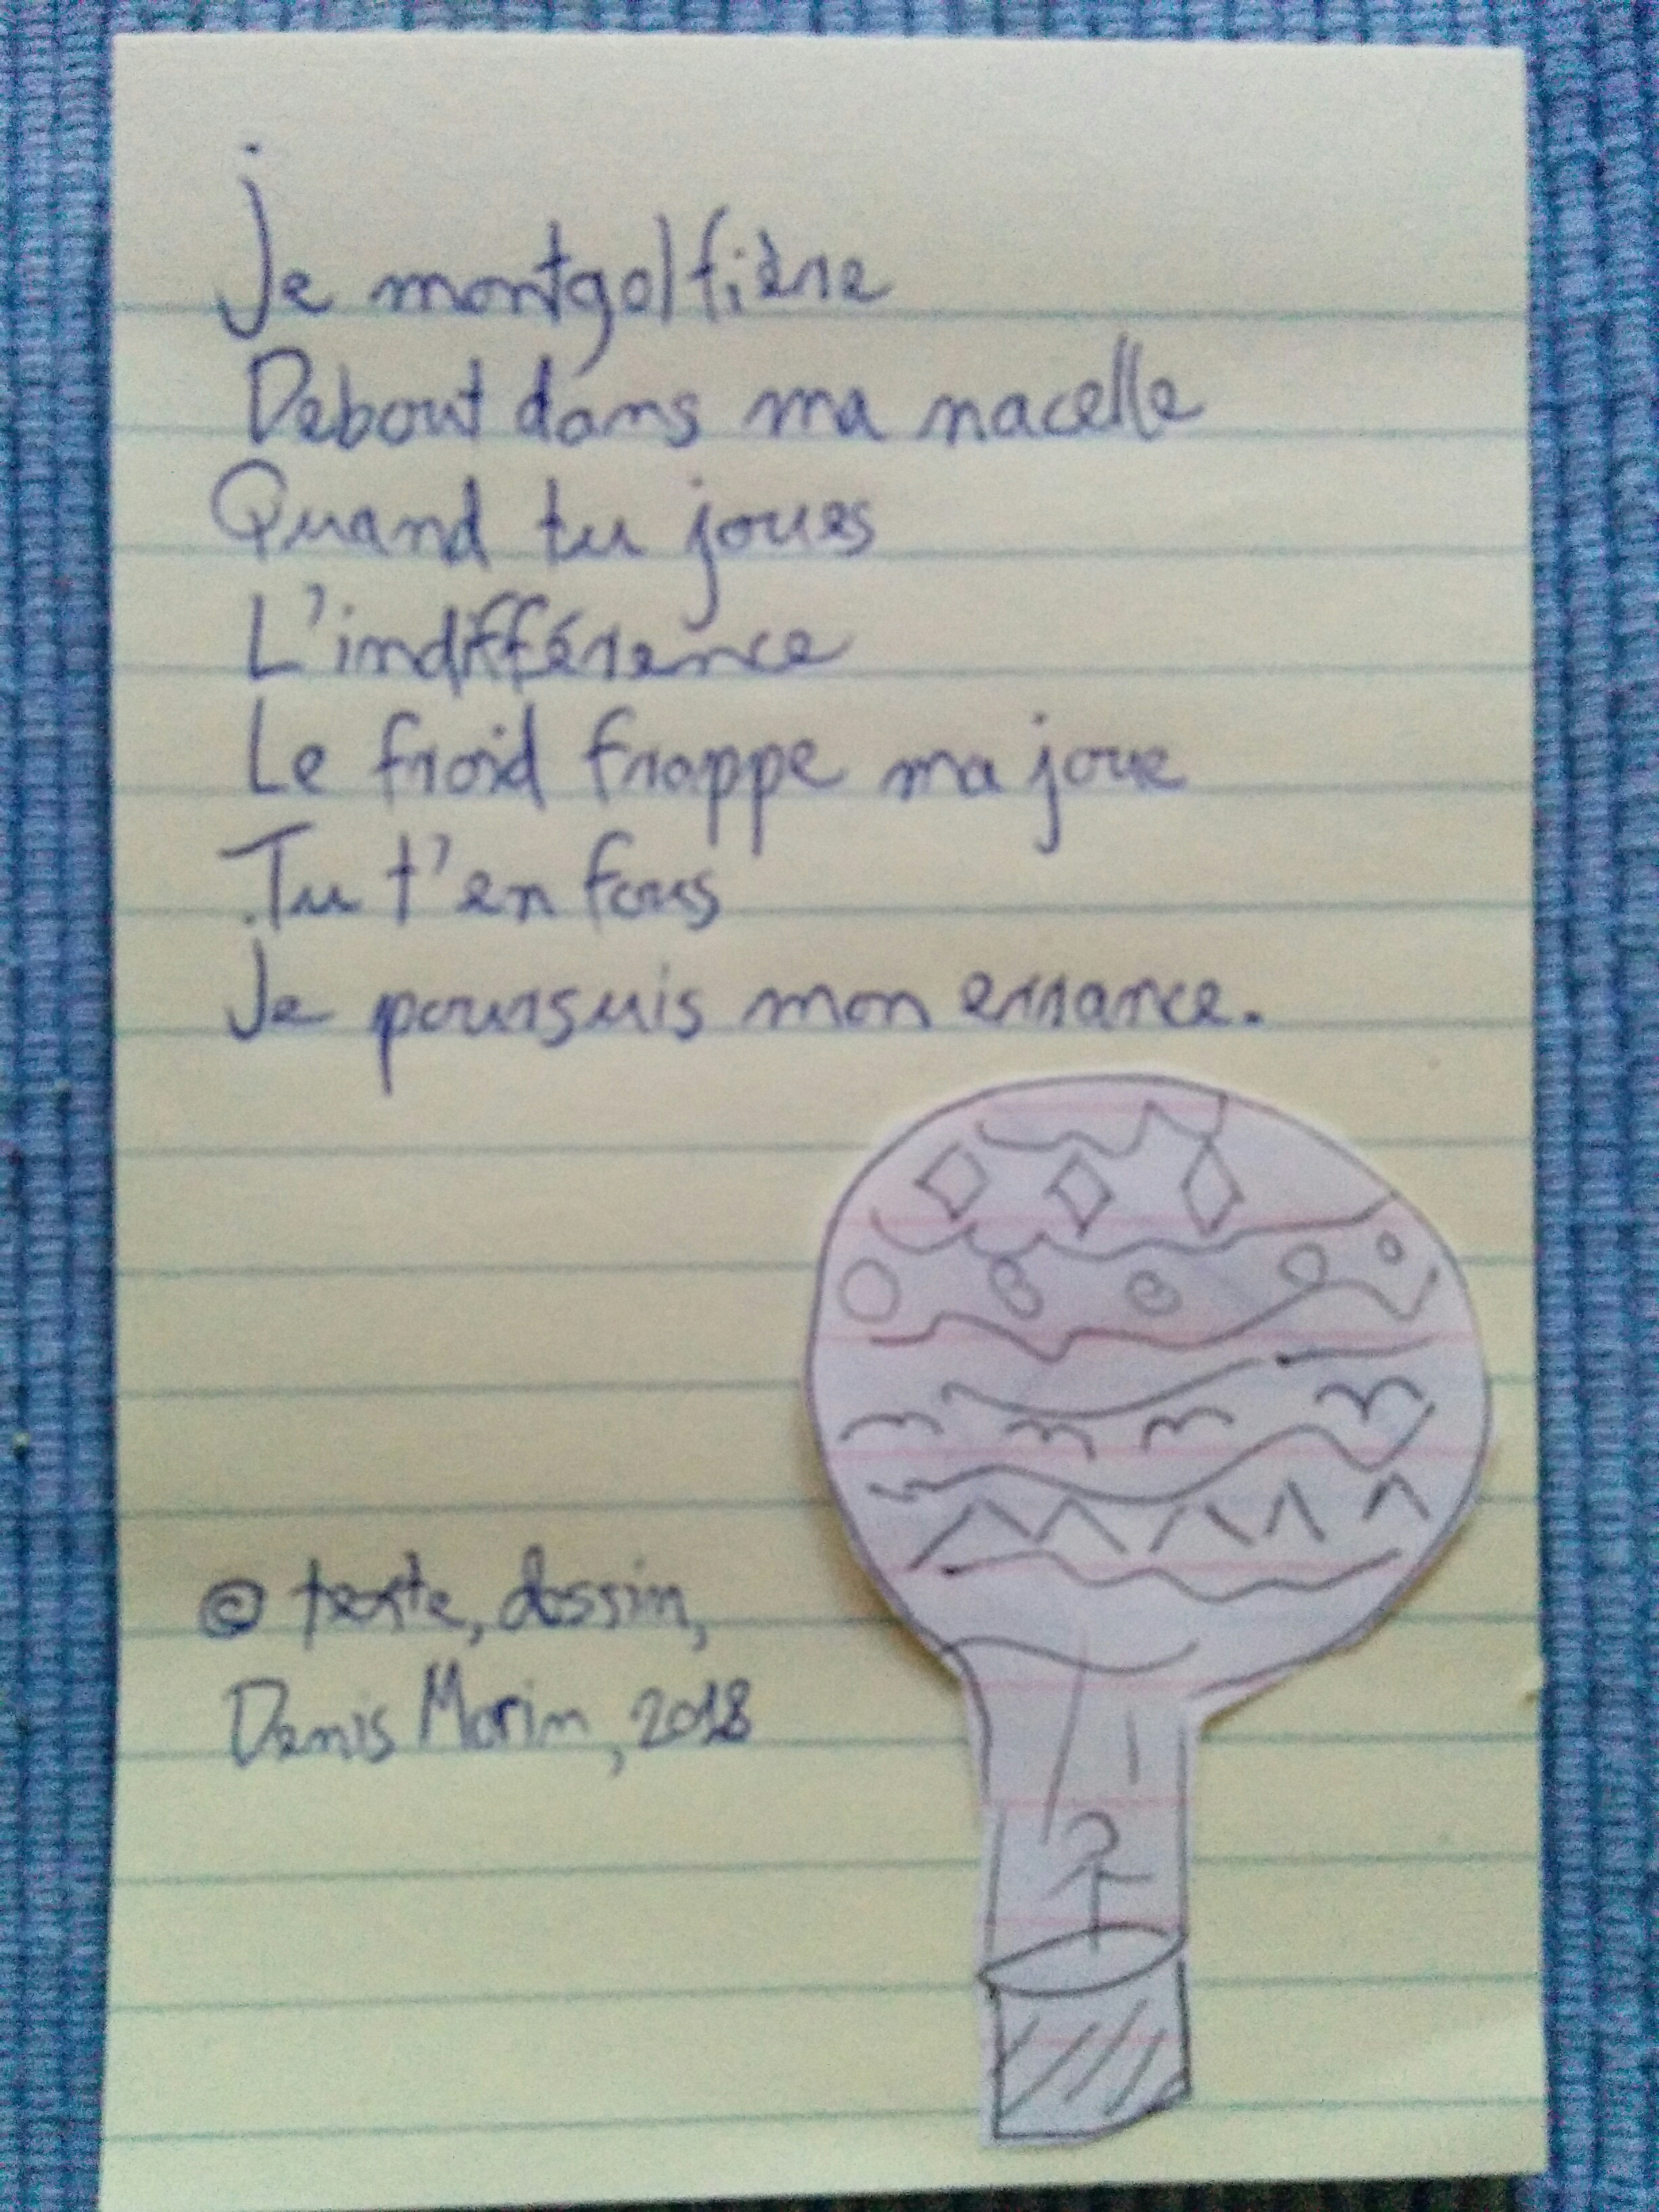 Je montgolfière
Debout dans ma nacelle
Quand tu joues
L'indifférence
Le froid frappe ma joue
Tu t'en fous
Je poursuis mon errance.
© texte, dessin,
Denis Morin, 2018